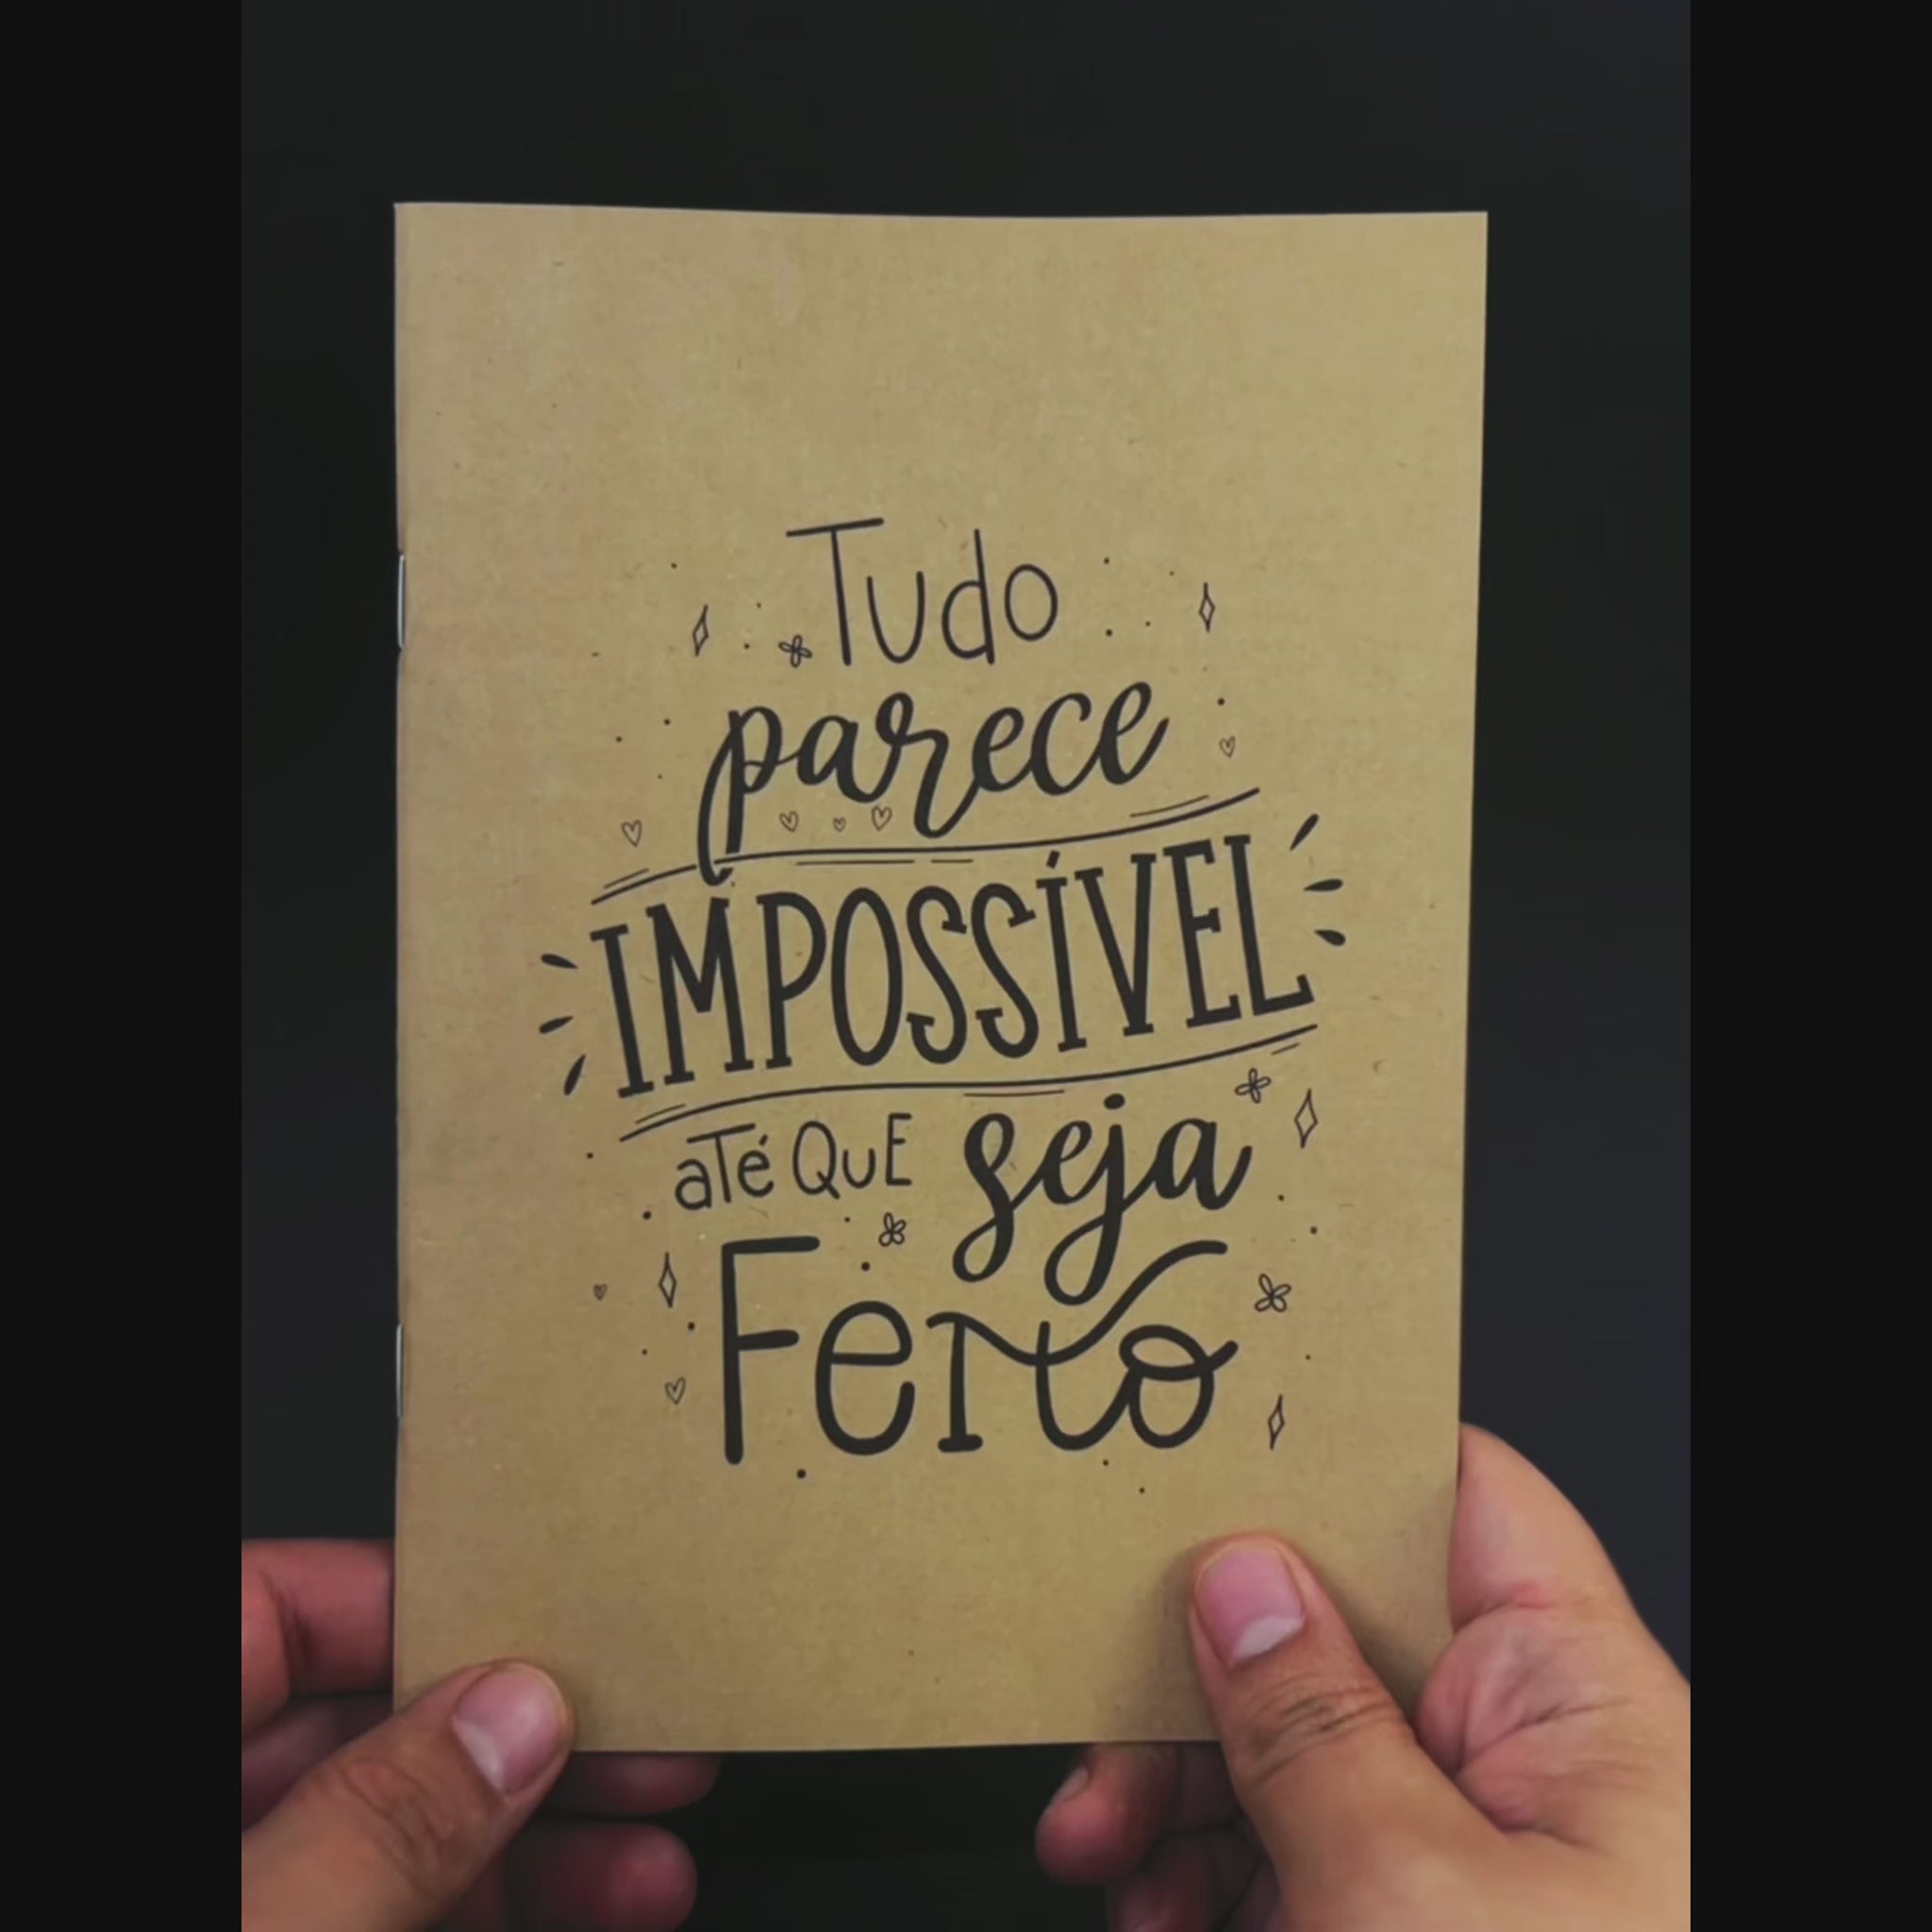 Tudo
parece
IMPOSSÍVEL
até QUE seja
Feito